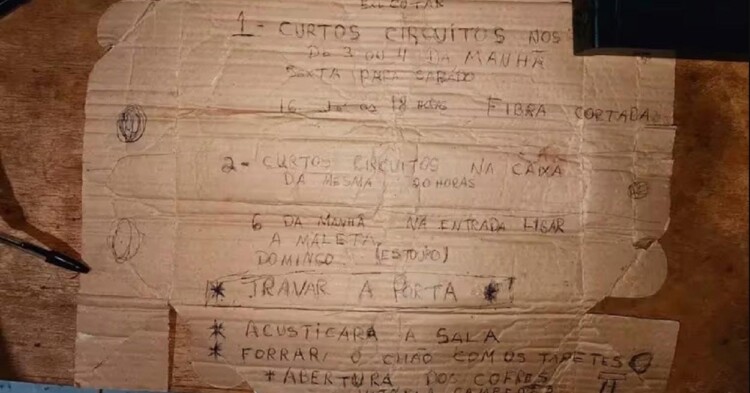 1 - CURTOS CIRCUITOS NOS
DO 3 OU 4 DA MANHÃ
SEXTA PARA SABADO
16 AS 18 HORAS FIBRA CORTADA
2 - CURTOS CIRCUITOS NA CAIXA
DA MESMA 00 HORAS
6 DA MANHÃ NA ENTRADA LIGAR
A MALETA
DOMINGO (ESTOJO)
* TRAVAR A PORTA *
* ACUSTICARA A SALA
* FORRAR O CHÃO COM OS TAPETES
+ ABERTURA DOS COFRES